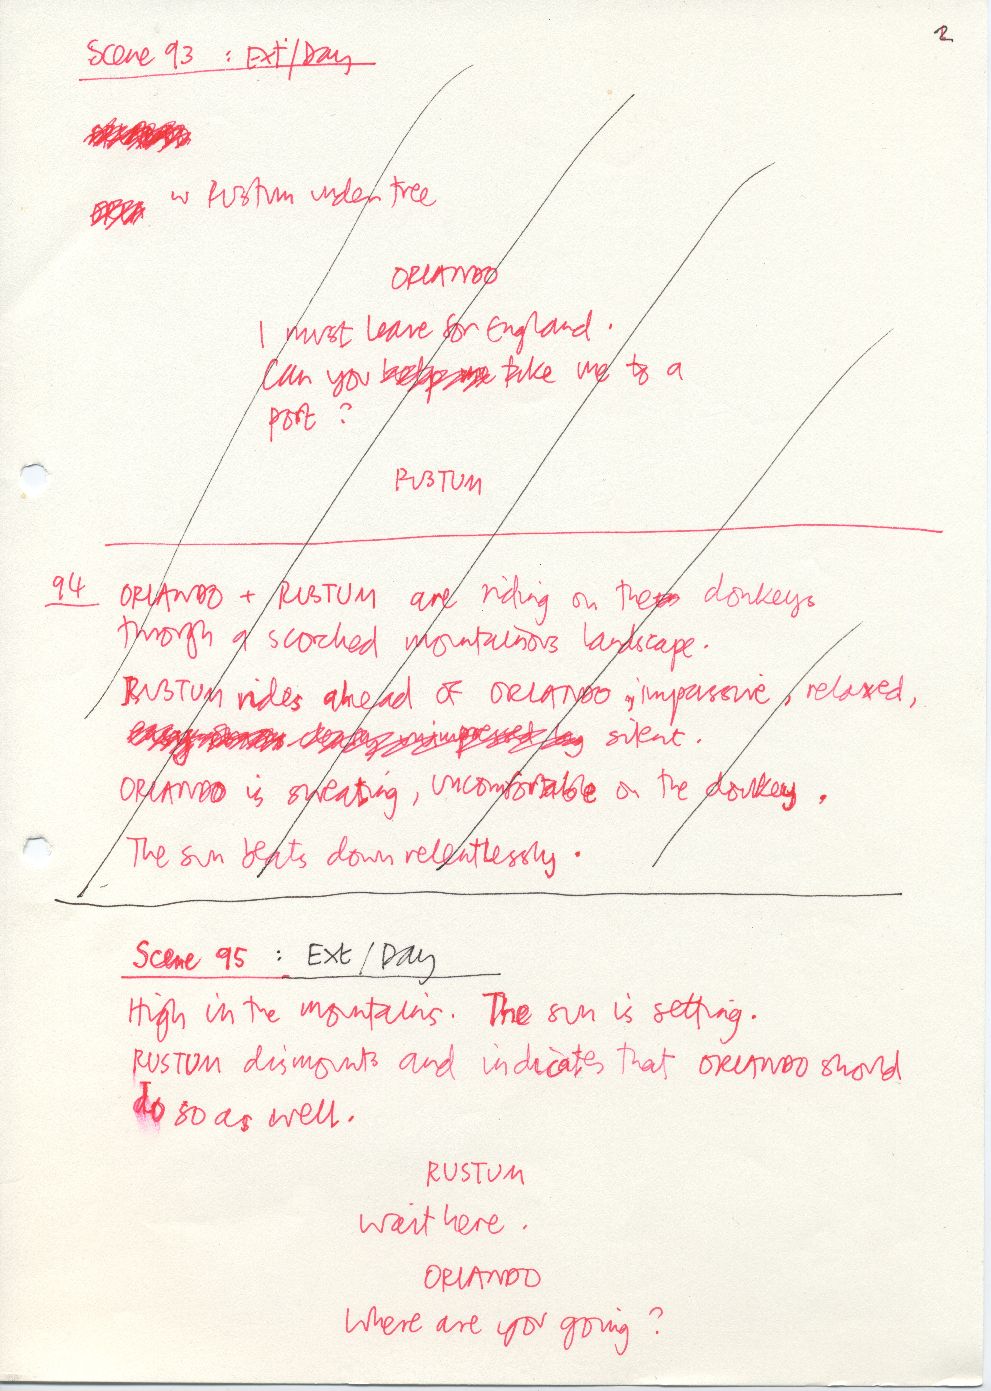 2
Scene 93 : Ext/Day
w RUSTUM under tree
ORLANDO
I must leave for England.
Can you help me take me to a
port?
RUSTUM
94 ORLANDO + RUSTUM are riding on the donkeys
through a scorched mountainous landscape.
RUSTUM rides ahead of ORLANDO; impassive, relaxed,
silent.
ORLANDO is sweating, uncomfortable on the donkey.
The sun beats down relentlessly.
Scene 95 : Ext/Day
High in the mountains. The sun is setting.
RUSTUM dismounts and indicates that ORLANDO should
do so as well.
RUSTUM
Wait here.
ORLANDO
Where are you going?